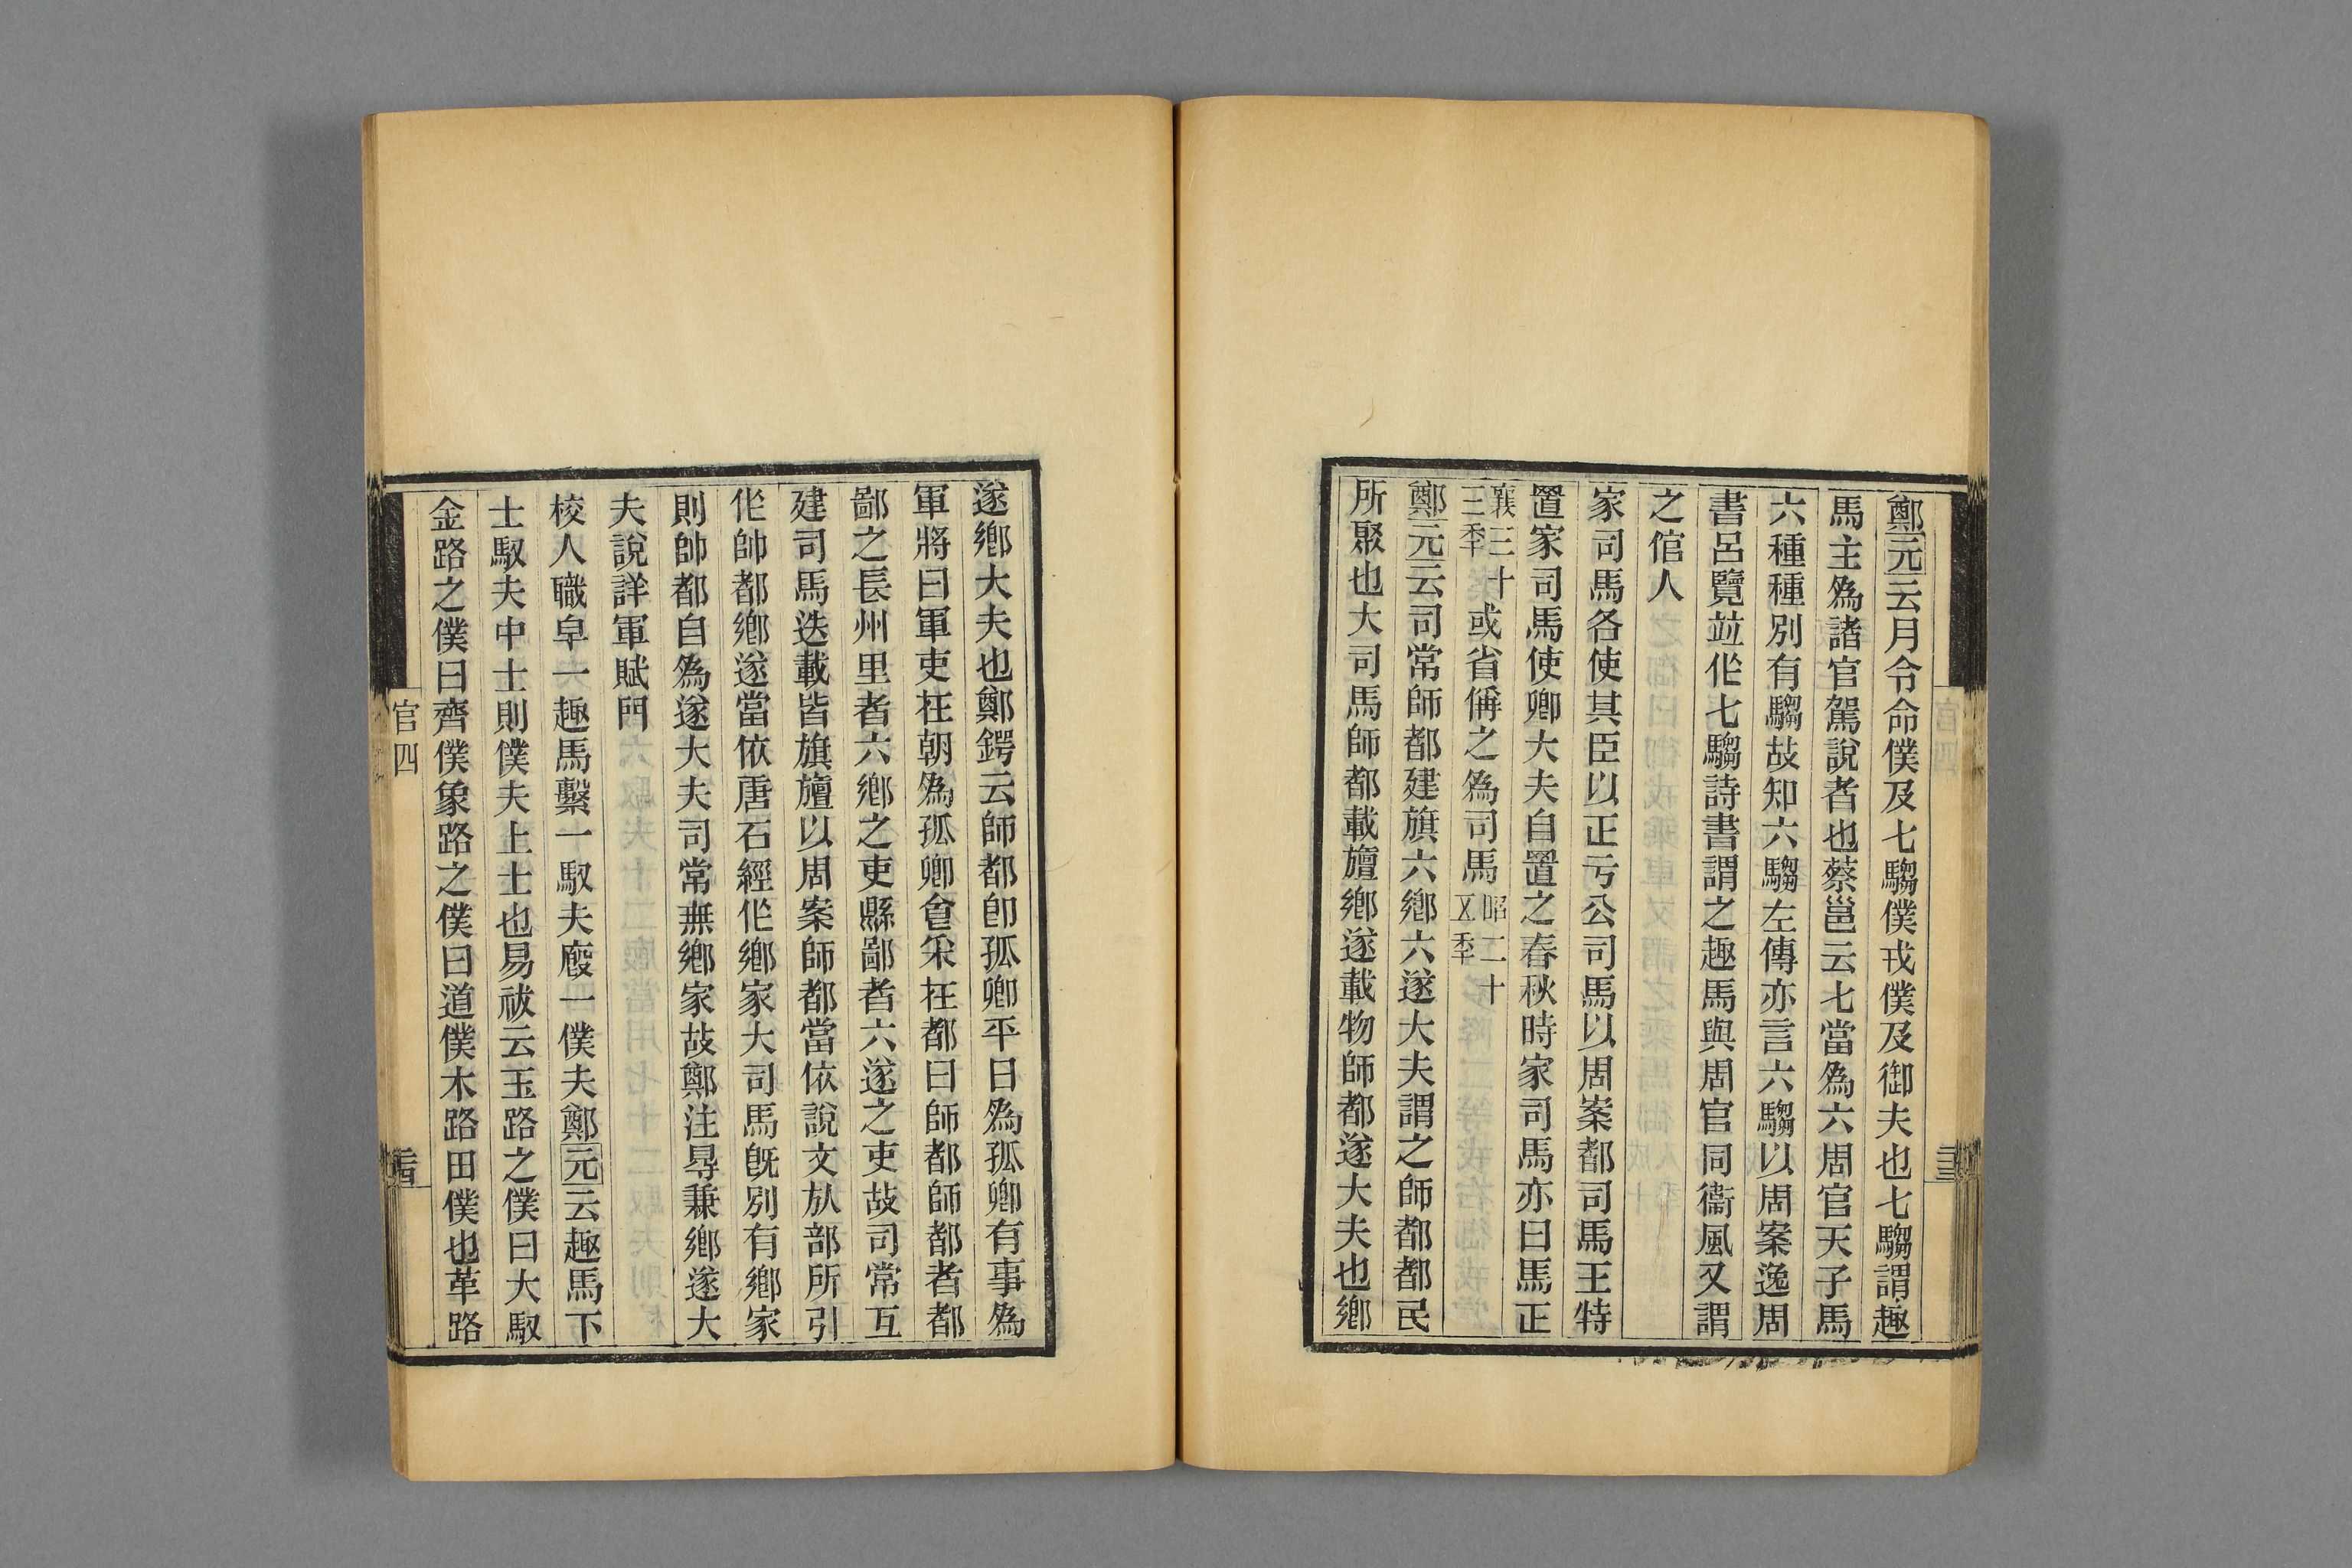 鄭元云月令命僕及七騶僕戎僕及御夫也七騶謂趣
馬主為諸官駕說者也蔡邕云七當為六周官天子馬
六種種別有騶故知六騶左傳亦言六騶以周案逸周
書呂覽竝作七騶詩書謂之趣馬與周官同衞風又謂
之倌人
家司馬各使其臣以正亏公司馬以周案都司馬王特
置家司馬使卿大夫自置之春秋時家司馬亦曰馬正
襄三十
三秊
或省偁之為司馬
昭二十
五秊
鄭元云司常師都建旗六鄉六遂大夫謂之師都都民
所聚也大司馬師都載旜鄉遂載物師都遂大夫也鄉
遂鄉大夫也鄭鍔云師都卽孤卿平日為孤卿有事為
軍將曰軍吏在朝為孤卿食采在都曰師都師都者都
鄙之長州里者六鄉之吏縣鄙者六遂之吏故司常互
建司馬迭載皆旗旜以周案師都當依說文㫃部所引
作帥都鄉遂當依唐石經作鄉家大司馬旣別有鄉家
則帥都自為遂大夫司常無鄉家故鄭注㝵兼鄉遂大
夫說詳軍賦門
校人職皁一趣馬繫一馭夫廄一僕夫鄭元云趣馬下
士馭夫中士則僕夫上士也易祓云玉路之僕曰大馭
金路之僕曰齊僕象路之僕曰道僕木路田僕也革路
官四